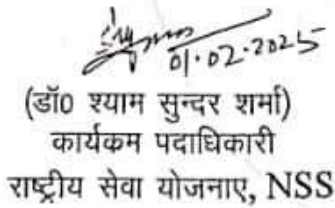 01.02.2025
(डॉ0 श्याम सुन्दर शर्मा)
कार्यकम पदाधिकारी
राष्ट्रीय सेवा योजनाए, NSS